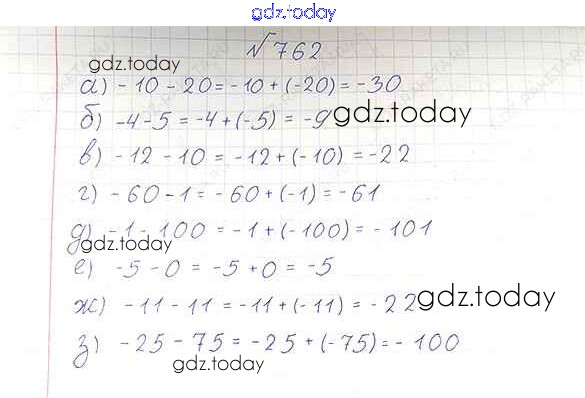 gdz.today
№ 762
gdz.today
а) - 10 - 20 = - 10 + (-20) = - 30
б) -4 - 5 = -4 + (-5) = -9 gdz.today
в) - 12 - 10 = - 12 + (- 10) = - 22
г) - 60 - 1 = - 60 + (-1) = - 61
д) - 1 - 100 = - 1 + (- 100) = - 101
gdz.today
е) -5 - 0 = -5 + 0 = -5
ж) - 11 - 11 = - 11 + (- 11) = - 22 gdz.today
з) - 25 - 75 = - 25 + (- 75) = - 100
gdz.today